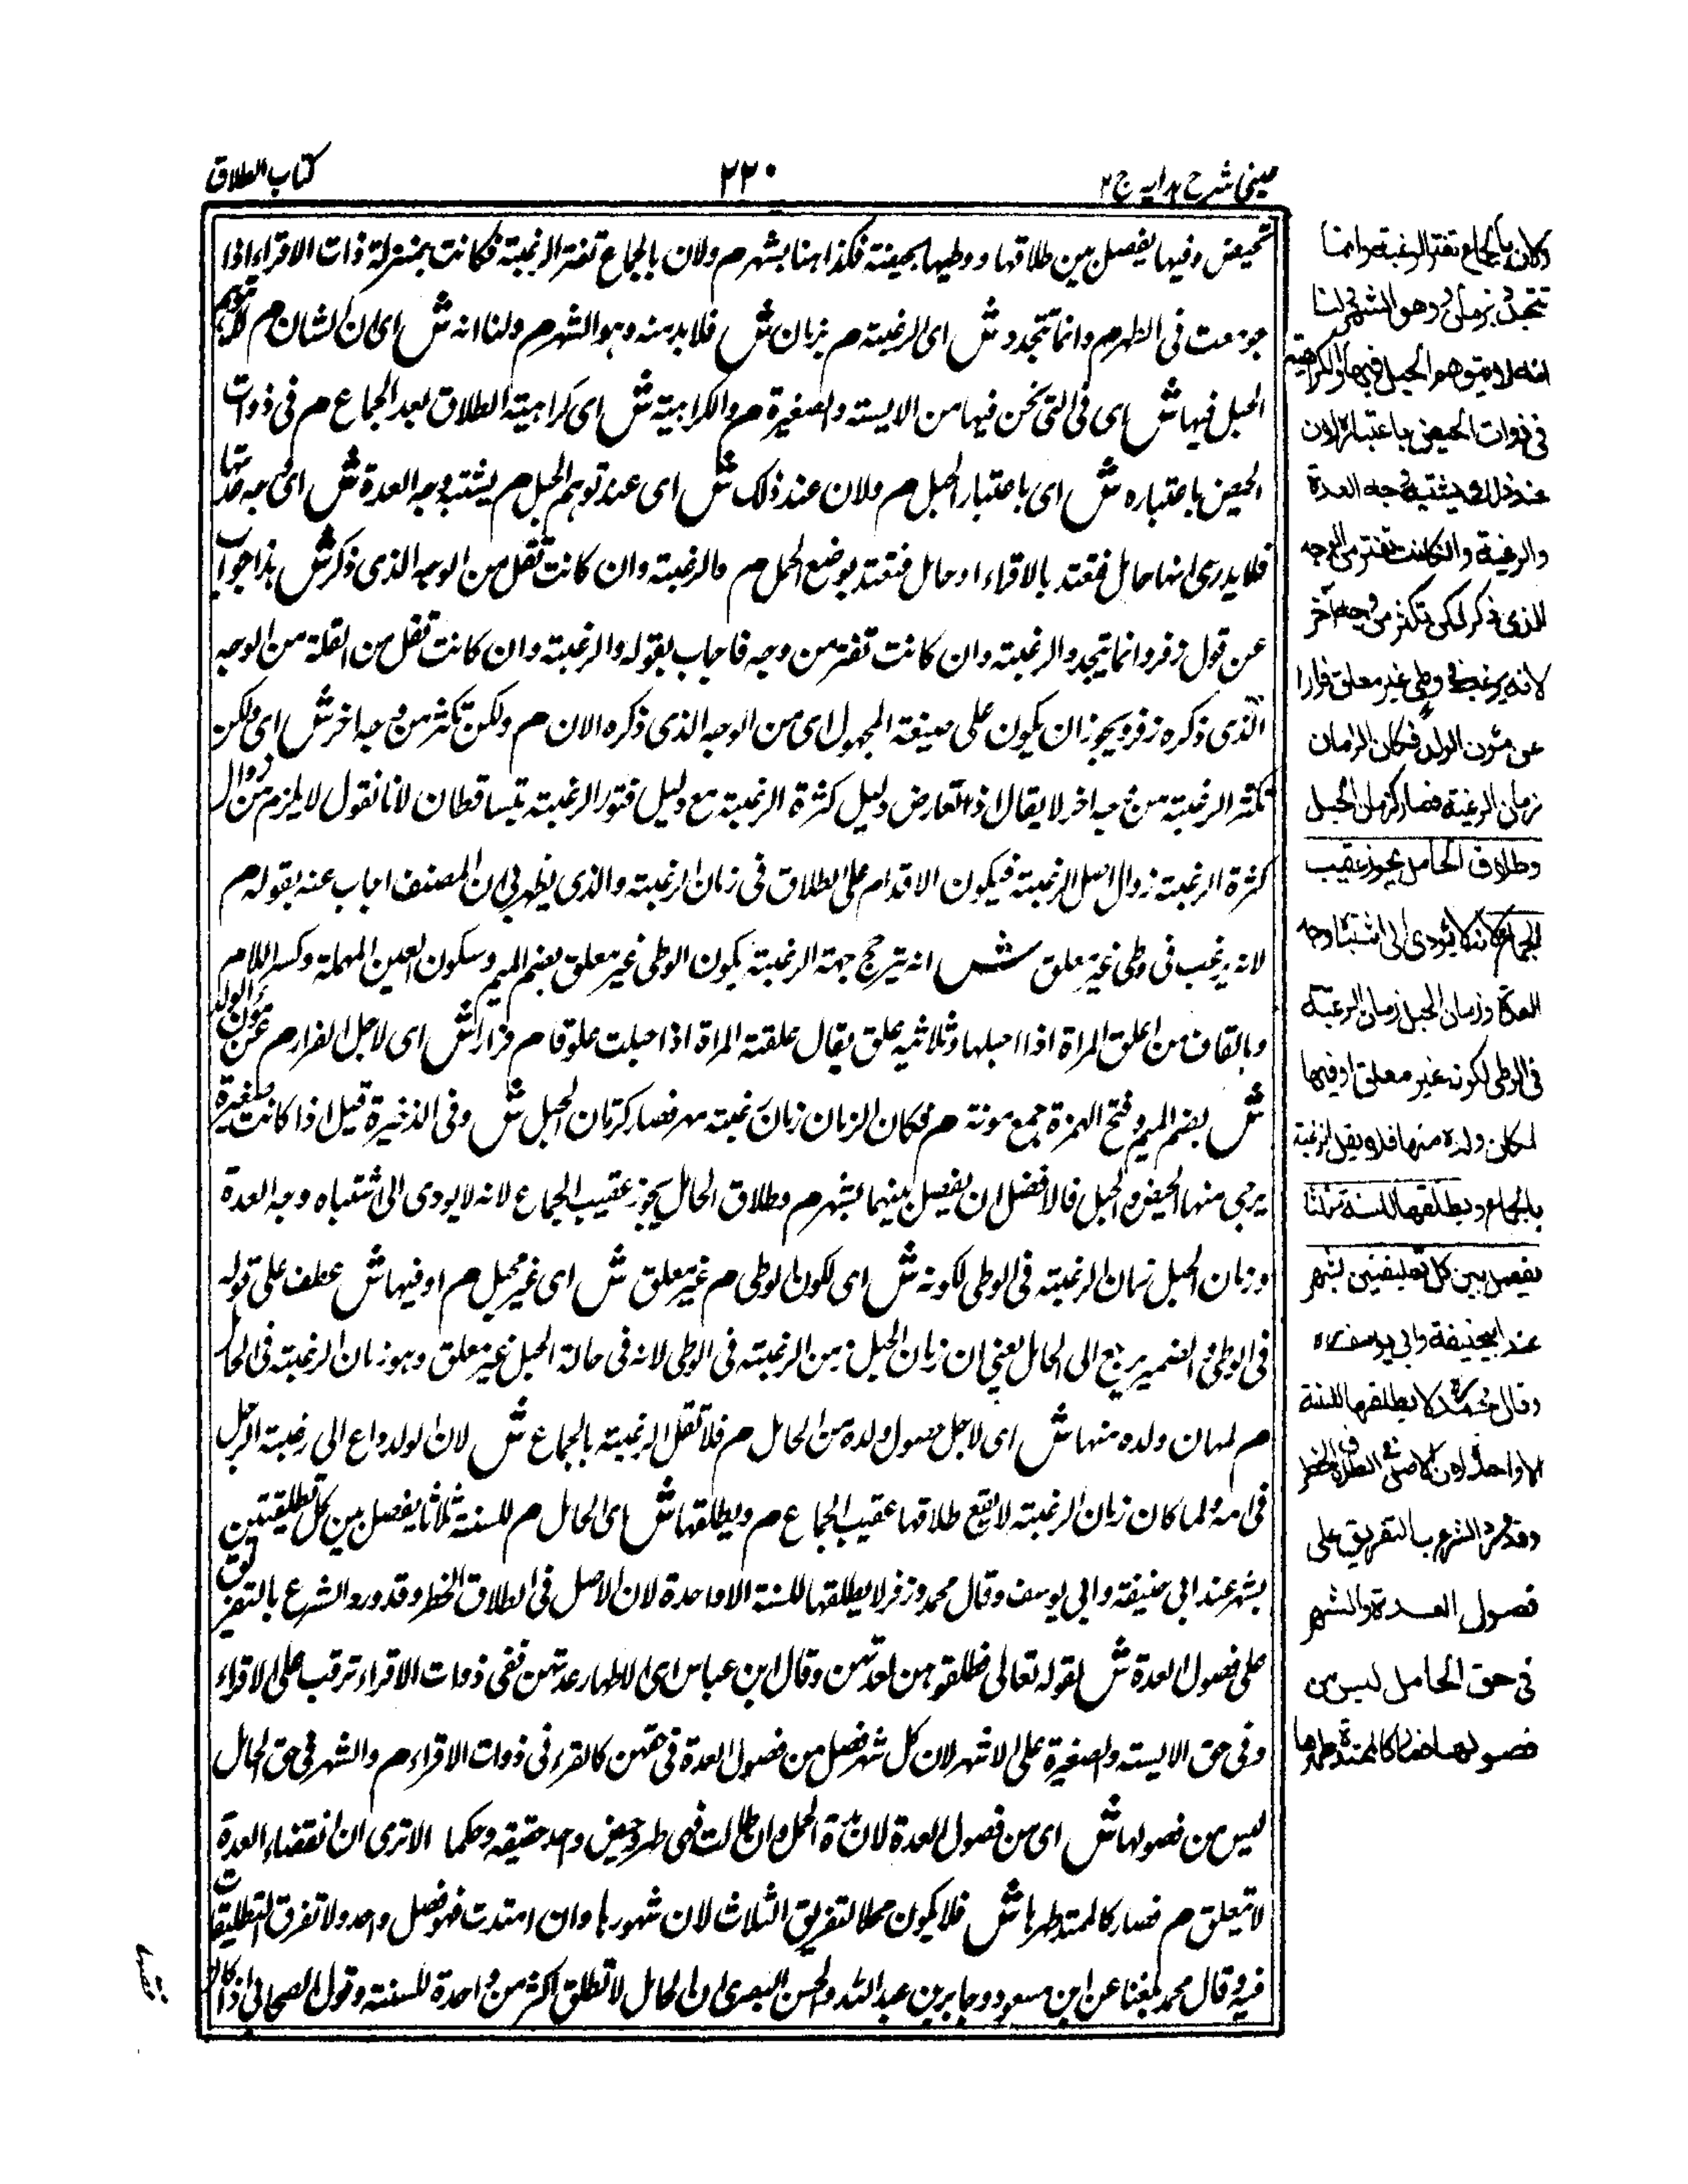 عينى شرح هدايه ج ٢
٢٢٠
كتاب الطلاق
تحيض وفيها يفصل بين طلاقها ووطيها بحيضة فكذا هنا بشهر م ولان بالجماع تفتر الرغبة فكانت بمنزلة ذات الاقراء اذا
جومعت فى الطهر م وانما تتجدد ش اى الرغبة م بزمان ش فلا بد منه وهو الشهر م ولنا انه ش اى ان الشان م لا يتوهم
الحبل فيها ش اى فى التى نحن فيها من الايسة والصغيرة م والكراهية ش اى كراهية الطلاق بعد الجماع م فى ذوات
الحيض باعتباره ش اى باعتبار الحبل م ولان عند ذلك ش اى عند توهم الحبل م يشتبه وجه العدة ش اى وجه عدتها
فلا يدرى انها حائل فتعتد بالاقراء او حامل فتعتد بوضع الحمل م والرغبة وان كانت تقل من الوجه الذى ذكر ش هذا جواب
عن قول زفر وانما يتجدد الرغبة وان كانت تفتر من وجه فاجاب بقوله والرغبة وان كانت تقل من القلة من الوجه
الذى ذكره زفر ويجوز ان يكون على صيغة المجهول اى من الوجه الذى ذكره الان م ولكن تكثر من وجه اخر ش اى ولكن
تكثر الرغبة من وجه اخر لا يقال اذا تعارض دليل كثرة الرغبة مع دليل فتور الرغبة يتساقطان لانا نقول لا يلزم من زوال
كثرة الرغبة زوال اصل الرغبة فيكون الاقدام على الطلاق فى زمان الرغبة والذى يظهر لى ان المصنف اجاب عنه بقوله م
لانه يرغب فى وطى غير معلق ش انه يترجح جهة الرغبة بكون الوطى غير معلق بضم الميم وسكون العين المهملة وكسر اللام
وبالقاف من اعلق المراة اذا احبلها وثلاثيه علق يقال علقت المراة اذا حبلت علوقا م فرارا ش اى لاجل الفرار م عن مؤن الولد
ش بضم الميم وفتح الهمزة جمع مونة م فكان الزمان زمان رغبة م فصار كزمان الحبل ش وفى الذخيرة قيل اذا كانت صغيرة
يرجى منها الحيض والحبل فالافضل ان يفصل بينهما بشهر م وطلاق الحامل يجوز عقيب الجماع لانه لا يودى الى اشتباه وجه العدة
وزمان الحبل زمان الرغبة فى الوطى لكونه ش اى لكون الوطى م غير معلق ش اى غير محبل م او فيها ش عطف على قوله
فى الوطى والضمير يرجع الى الحامل يعنى ان زمان الحبل زمن الرغبة فى الوطى لانه فى حالة الحبل غير معلق وهو زمان الرغبة فى الحامل
م لمكان ولده منها ش اى لاجل حصول ولده من الحامل م فلا تقل الرغبة بالجماع ش لان الولد داع الى رغبة الرجل
فى امه ولما كان زمان الرغبة لا يقع طلاقها عقيب الجماع م ويطلقها ش اى الحامل م للسنة ثلاثا يفصل بين كل تطليقتين
بشهر عند ابى حنيفة وابى يوسف وقال محمد وزفر لا يطلقها للسنة الا واحدة لان الاصل فى الطلاق الحظر وقد ورد الشرع بالتفريق
على فصول العدة ش لقوله تعالى فطلقوهن لعدتهن وقال ابن عباس اى لاطهار عدتهن ففى ذوات الاقراء ترقب على الاقراء
وفى حق الايسة والصغيرة على الاشهر لان كل شهر فصل من فصول العدة فى حقهن كالقرء فى ذوات الاقراء م والشهر فى حق الحامل
ليس من فصولها ش اى من فصول العدة لان مدة الحمل وان طالت فهى طهر وحيض واحد حقيقة وحكما الا ترى ان انقضاء العدة
لا تتعلق م فصار كالممتد طهرها ش فلا يكون محلا لتفريق الثلاث لان شهورها وان امتدت فهو فصل واحد ولا تفرق التطليقات
فيه وقال محمد بلغنا عن ابن مسعود وجابر بن عبد الله والحسن البصرى ان الحامل لا تطلق اكثر من واحدة للسنة وقول الصحابى اذا كان
ولان بالجماع تفتر الرغبة وانما
تتجدد بزمان وهو الشهر ولنا
انه لا يتوهم الحبل فيها والكراهية
فى ذوات الحيض باعتباره لان
عند ذلك يشتبه وجه العدة
والرغبة وان كانت تفتر من الوجه
الذى ذكر لكن تكثر من وجه آخر
لانه يرغب فى وطى غير معلق فرارا
عن مؤن الولد فكان الزمان
زمان الرغبة فصار كزمان الحبل
وطلاق الحامل يجوز عقيب
الجماع لانه لا يؤدى الى اشتباه وجه
العدة وزمان الحبل زمان الرغبة
فى الوطى لكونه غير معلق او فيها
لمكان ولده منها فلا يقل الرغبة
بالجماع ويطلقها للسنة ثلاثا
يفصل بين كل تطليقتين بشهر
عند ابيحنيفة وابى يوسف ره
وقال محمد ره لا يطلقها للسنة
الا واحدة لان الاصل فى الطلاق الحظر
وقد ورد الشرع بالتفريق على
فصول العدة والشهر
فى حق الحامل ليس من
فصولها فصار كالممتدة طهرها